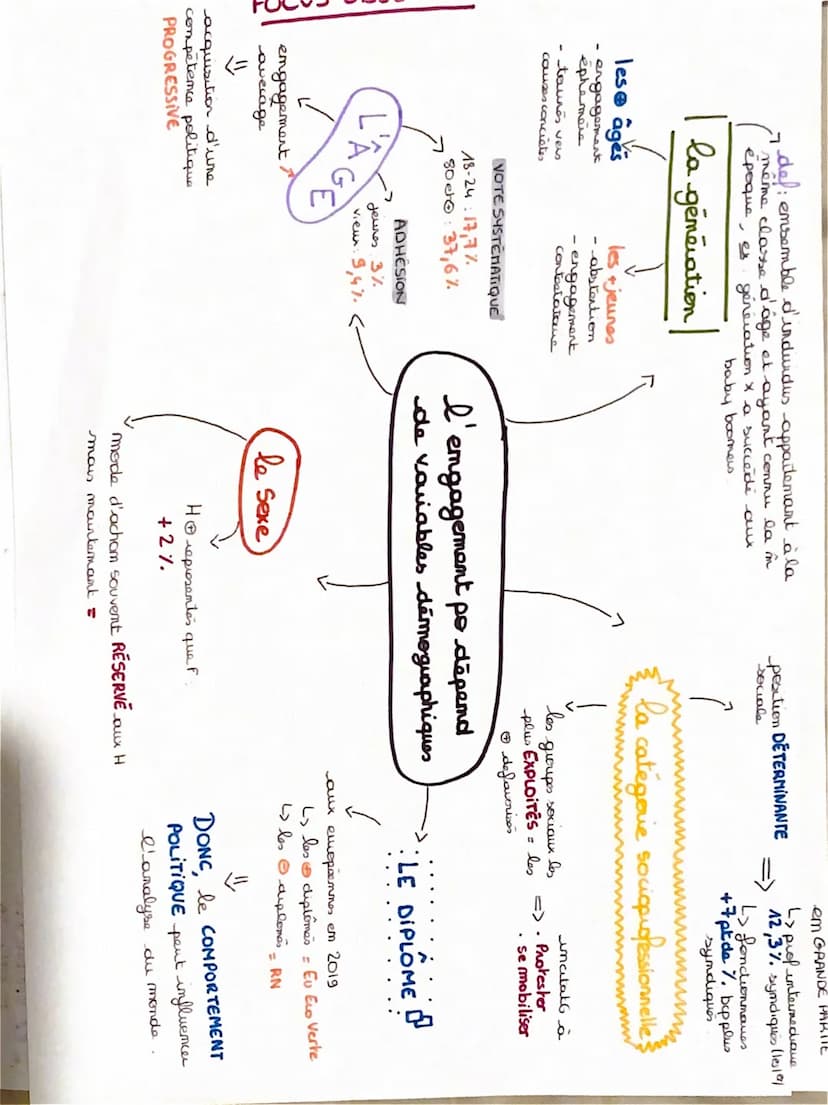 FOCUS
def : ensemble d'individus appartenant à la
même classe d'âge et ayant connu la m̂
époque, ex : génération x a succédé aux
baby boomers
la génération
les ⊕ âgés
- engagement
éphémère
- tournés vers
causes concrètes
les + jeunes
- abstention
- engagement
contestataire
L'ÂGE
VOTE SYSTÉMATIQUE
18-24 : 17,7%
80 et ⊕ : 37,6%
ADHÉSION
jeunes : 3%
vieux : 9,4%
engagement ↗
avec age
⇓
acquisition d'une
compétence politique
PROGRESSIVE
l'engagement po dépend
de variables démographiques
le sexe
H ⊕ représentés que F :
+ 2%
mode d'action souvent RÉSERVÉ aux H
mais maintenant =
la catégorie socioprofessionnelle
position DÉTERMINANTE
sociale
en GRANDE PARTIE
↳ prof intermédiaire
12,3% syndiqués (2019)
↳ fonctionnaires
+7 pt de % bcp plus
syndiqués
les groupes sociaux les
plus EXPLOITÉS = les
⊕ défavorisés
=> incitatifs à
. Protester
. se mobiliser
LE DIPLÔME
aux européennes en 2019
↳ les ⊕ diplômés = Eu Eco Verte
↳ les ⊖ diplômés = RN
⇓
DONC, le COMPORTEMENT
POLITIQUE peut influencer
l'analyse du monde.